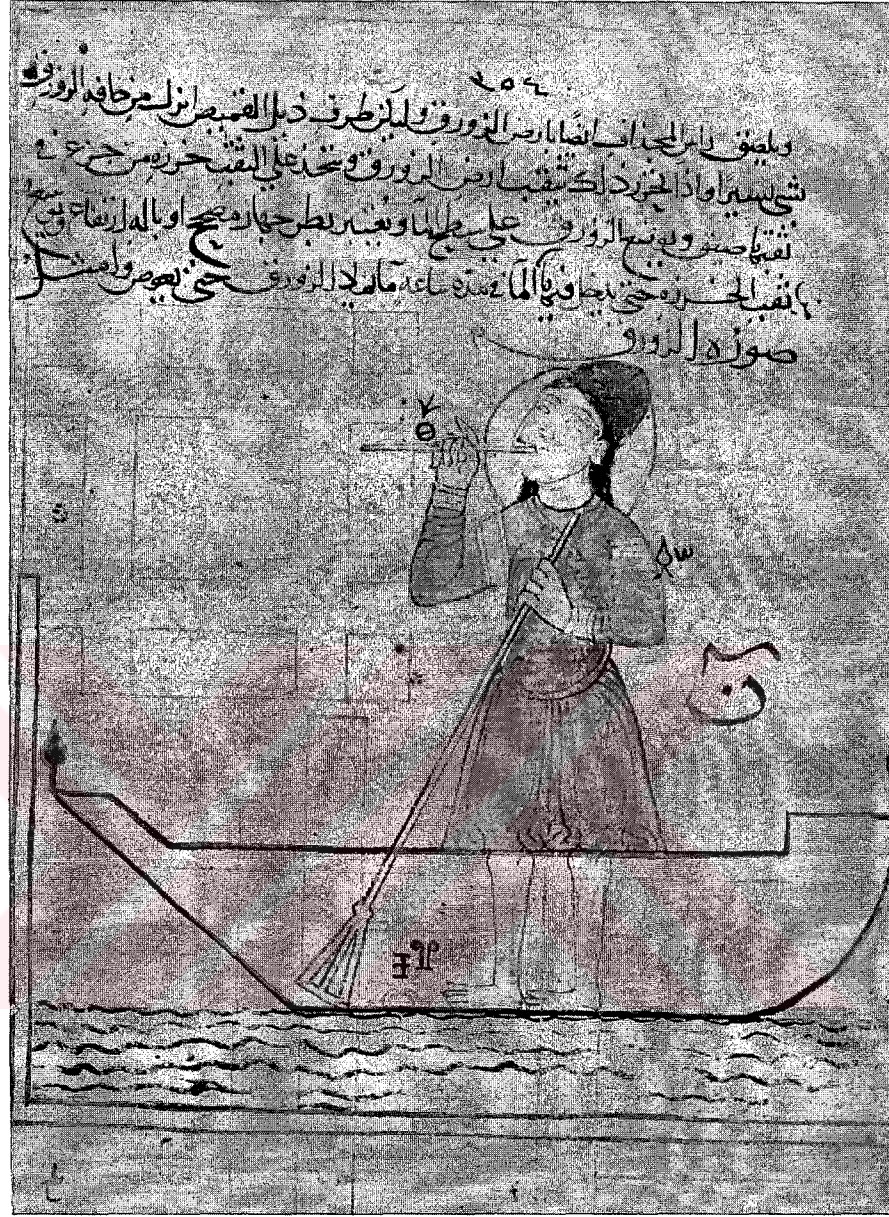 ٢٥٤
ويلصق راس المجذاف ايضا بارض الزورق وليكن طرف ذيل القميص انزل من حافه الزورق
شي يسيرا واذا تحرر ذلك تثقب ارض الزورق ويتخذ على الثقب خرزه من جزع في
ثقبها ضيق ويوضع الزورق على سطح الما ويعتبر بطرجهار صحيح او باله ارتفاع ويتسع
ثقب الخرزه حتى يدخل فيها الما في مده ساعه ما يملا الزورق حتى يغوص وامثل
صوره الزورق
ن